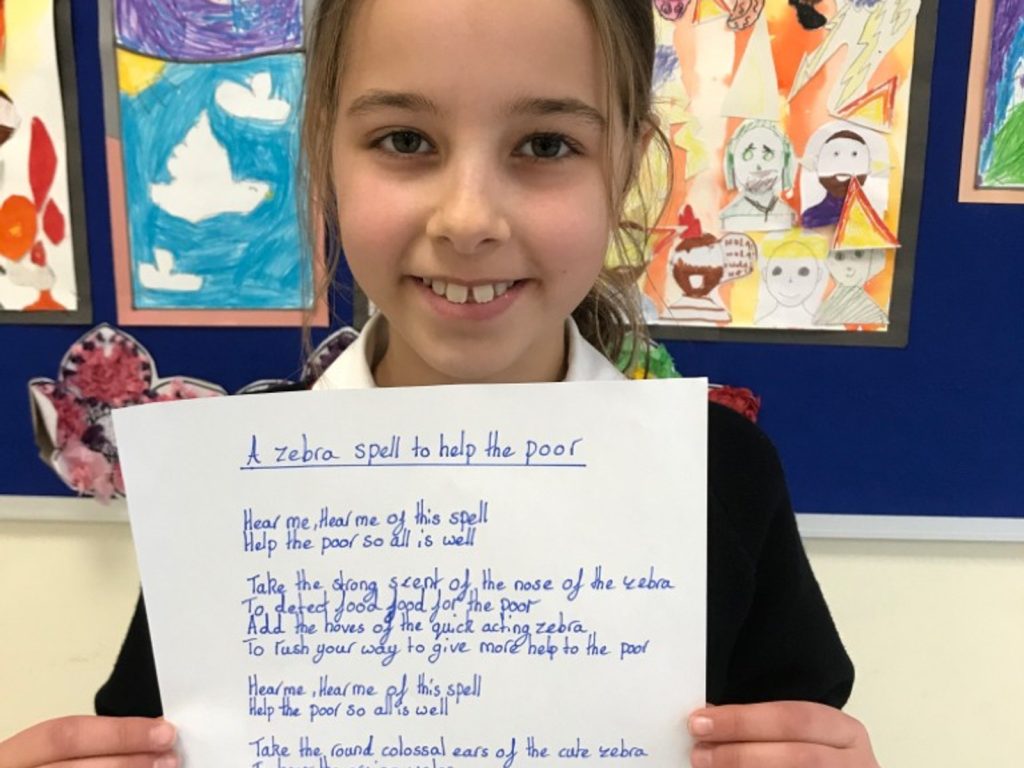 A zebra spell to help the poor
Hear me, Hear me of this spell
Help the poor so all is well
Take the strong scent of the nose of the zebra
To detect food food for the poor
Add the hoves of the quick acting zebra
To rush your way to give more help to the poor
Hear me, Hear me of this spell
Help the poor so all is well
Take the round colossal ears of the cute zebra